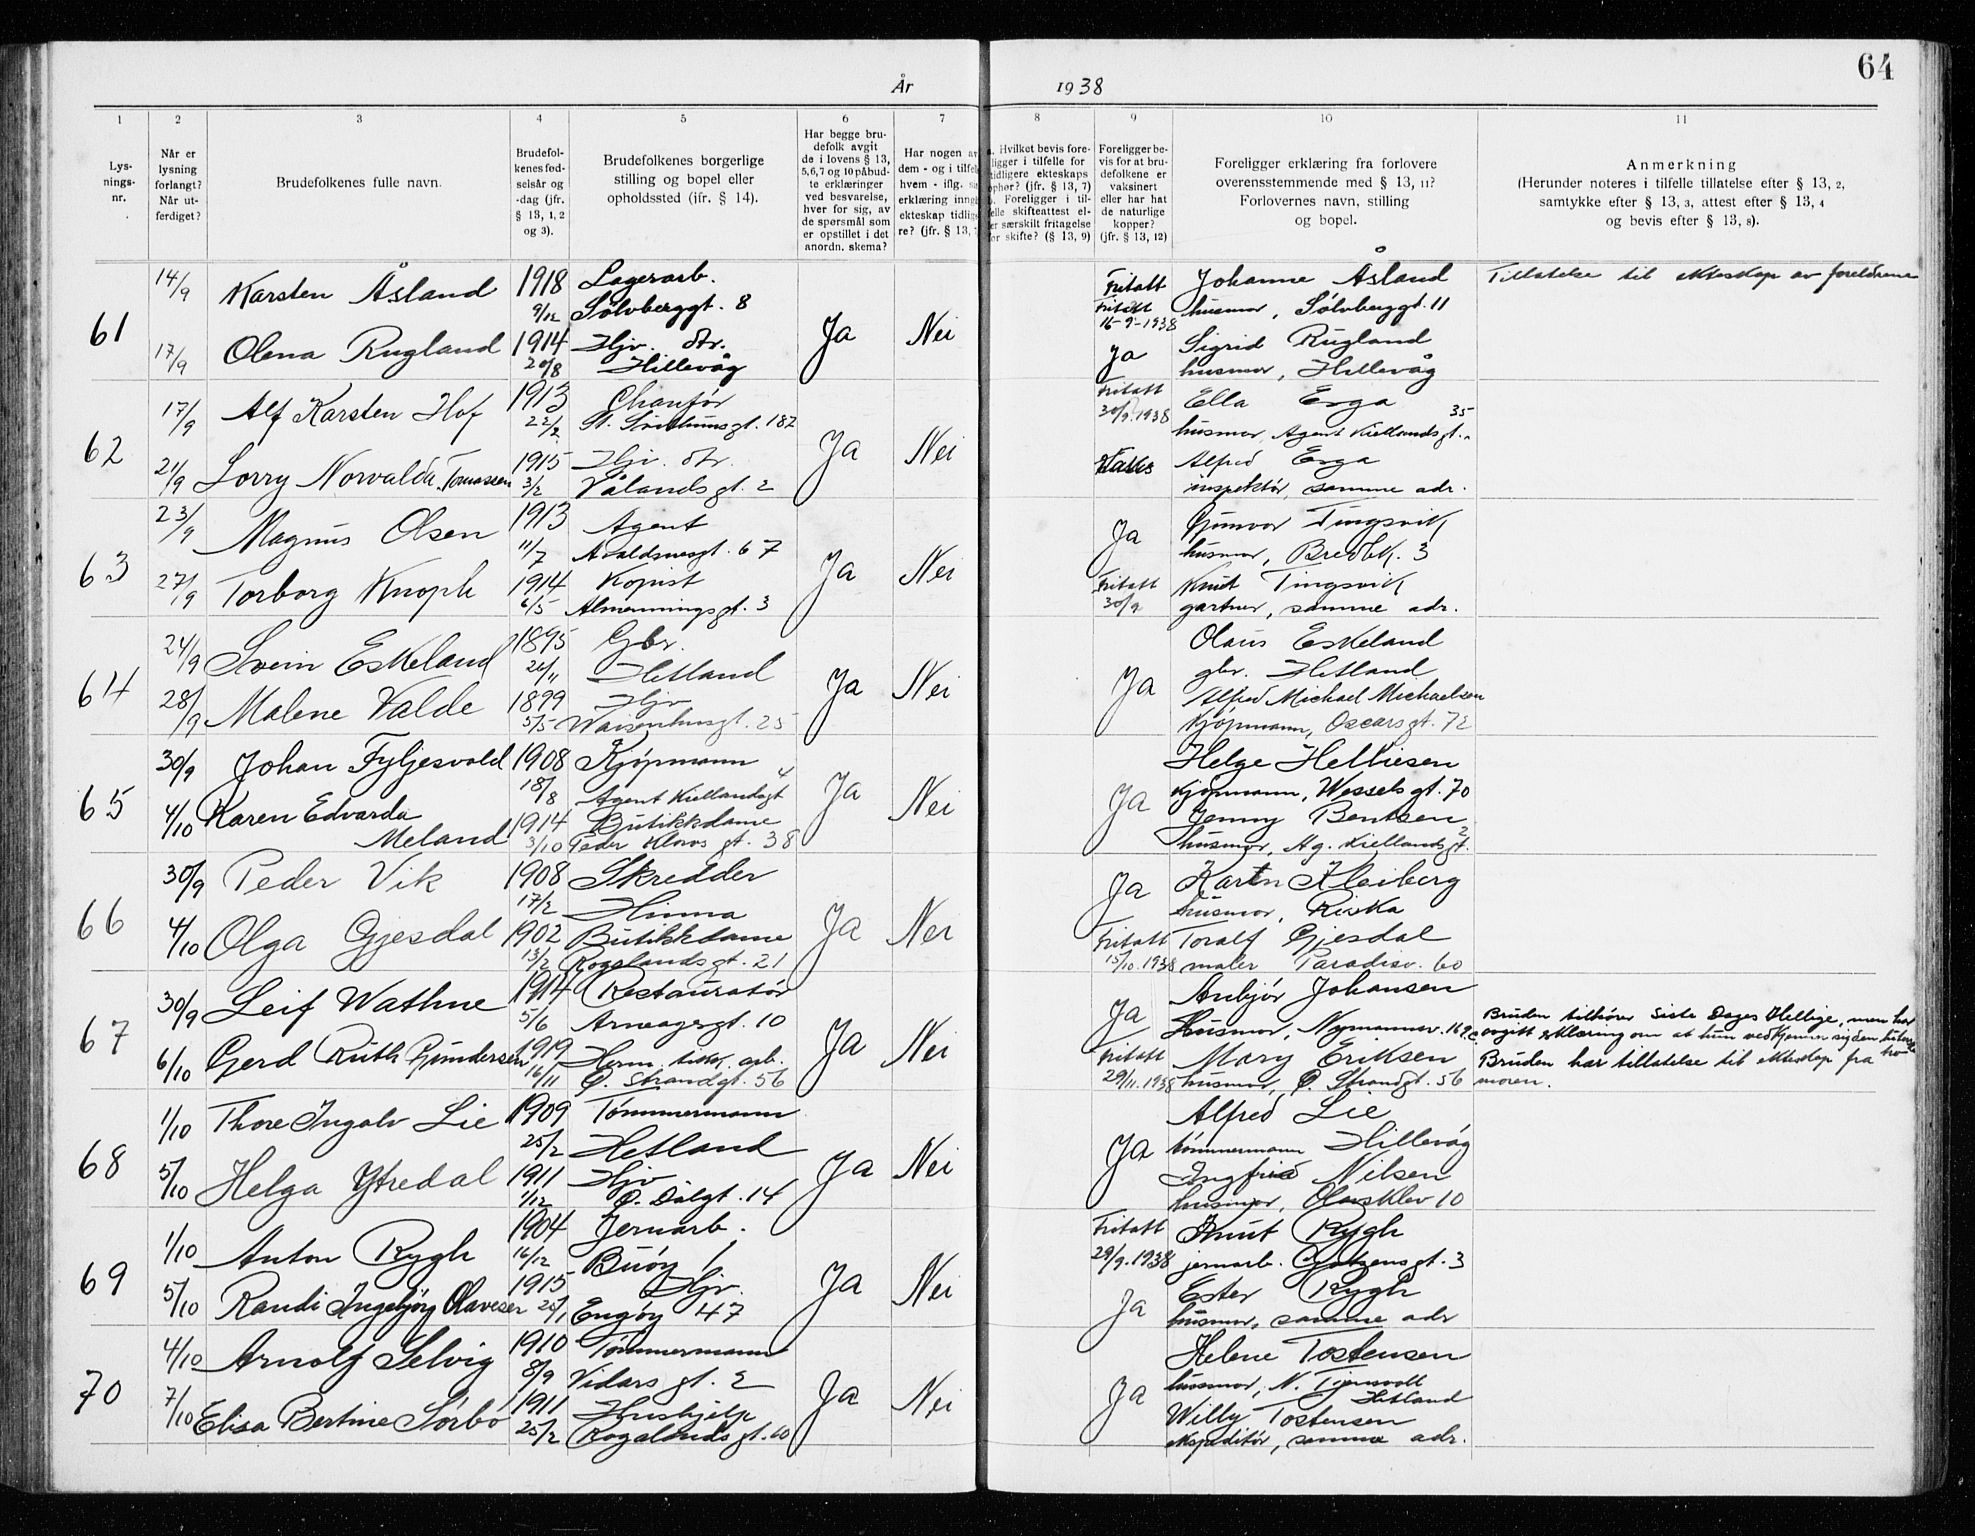 64
År 1938
1 2 3 4 5 6 7 8 9 10 11
Lys-
nings-
nr.
Når er
lysning
forlangt?
Når ut-
ferdiget?
Brudefolkenes fulle navn.
Brudefol-
kenes fød-
selsår og
-dag (jfr.
§ 13, 1, 2
og 3).
Brudefolkenes borgerlige
stilling og bopel eller
opholdssted (jfr. § 14).
Har begge bru-
defolk avgit
de i lovens § 13,
5,6,7 og 10 påbud-
te erklæringer
ved besvarelse,
hver for sig, av
de spørsmål som
er opstillet i det
anordn. skema?
Har nogen av
dem - og i tilfelle
hvem - iflg. sin
erklæring inng
ekteskap tidlig
re? (jfr. § 13,
a. Hvilket bevis fore-
ligger i tilfelle for
tidligere ekteskaps
ophør? (jfr. § 13, 7)
Foreligger i til-
felle skifteattest el-
er særskilt fritagelse
for skifte? (§ 13, 9)
Foreligger be-
vis for at bru-
defolkene er
vaksinert
eller har hat
de naturlige
kopper?
(jfr. § 13, 12)
Foreligger erklæring fra forlovere
overensstemmende med § 13, 11?
Forlovernes navn, stilling
og bopel.
Anmerkning
(Herunder noteres i tilfelle tillatelse efter § 13, 2,
samtykke efter § 13, 3, attest efter § 13, 4
og bevis efter § 13, 8).
61
14/9 Karsten Åsland 1918 Lagerarb. Fritatt Johanne Åsland Tillatelse til ekteskap av foreldrene
9/12 Sølvberggt. 8 Ja Nei Fritatt 16-9-1938 husmor, Sølvberggt. 11
17/9 Olena Rugland 1914 Hjv. dtr. Ja Sigrid Rugland
20/8 Hillevåg husmor, Hillevåg
62
17/9 Alf Karsten Hof 1913 Chaufør Fritatt Ella Erga
22/2 St. Svithunsgt. 182 Ja Nei 30/9.1938 husmor, Agent Kiellandsgt. 35
21/9 Lorry Norvalda Tomassen 1915 Hjv. dtr. Alfred Erga
3/2 Vålandsgt. 2 inspektør, samme adr.
63
23/9 Magnus Olsen 1913 Agent Ja Gunvor Tingsvik
11/7 Avaldsnesgt. 67 Ja Nei husmor, Bredbk. 3
27/9 Torborg Knoph 1914 Kopist Fritatt Knut Tingsvik
6/5 Almenningsgt. 3 30/9 gartner, samme adr.
64
24/9 Svein Eskeland 1895 Gbr. Olaus Eskeland
24/11 Hetland Ja Nei Ja gbr. Hetland
28/9 Malene Valde 1899 Hjv Alfred Michael Michaelsen
5/5 Waisenhusgt. 25 Kjøpmann, Oscarsgt. 72
65
30/9 Johan Fyljesvold 1908 Kjøpmann Helge Helliesen
18/8 Agent Kiellandsgt 4 Ja Nei Ja Kjøpmann, Wesselsgt. 70
4/10 Karen Edvarda Meland 1914 Butikkdame Jenny Bentsen
3/10 Peder Klows gt. 38 husmor, Ag. Kiellandsgt. 2
66
30/9 Peder Vik 1908 Skredder Ja Karen Kleiberg
17/2 Hinna Ja Nei husmor, Riska
4/10 Olga Gjesdal 1902 Butikkdame Fritatt Toralf Gjesdal
13/2 Rogalandsgt. 21 15/10.1938 maler Paradisv. 60
67
30/9 Leif Wathne 1914 Restauratør Ja Anbjør Johansen
5/6 Arneagergt. 10 Ja Nei Husmor, Nymannsv. 169c
6/10 Gerd Ruth Gundersen 1919 Herm. arb. Fritatt Mary Eriksen
16/11 Ø. Strandgt. 56 29/11.1938 husmor, Ø. Strandgt. 56
Bruden tilhører Siste Dages Hellige, men har
avgitt erklæring om at hun vedkjenner sig den
Bruden har tillatelse til ekteskap fra
moren.
68
1/10 Thore Ingolv Lie 1909 Tømmermann Alfred Lie
25/2 Hetland Ja Nei Ja tømmermann Hillevåg
5/10 Helga Ytredal 1911 Hjv Ingfrid Nilsen
1/12 Ø. Dalgt. 14 husmor, Olavsklev 10
69
1/10 Anton Rygh 1904 Jernarb. Fritatt Knut Rygh
16/12 Buøy Ja Nei 29/9.1938 jernarb. gt. 3
5/10 Randi Ingebjørg Olavesen 1915 Hjv. Ja Ester Rygh
25/1 Engøy 47 husmor, samme adr
70
4/10 Arnolf Selvig 1910 Tømmermann Helene Tostensen
8/9 Vidars gt. 2 Ja Nei Ja husmor, N. Tjensvoll Hetland
7/10 Elisa Bertine Sørbø 1911 Hushjelp Willy Tostensen
25/2 Rogalandsgt. 60 ekspeditør, samme adr.